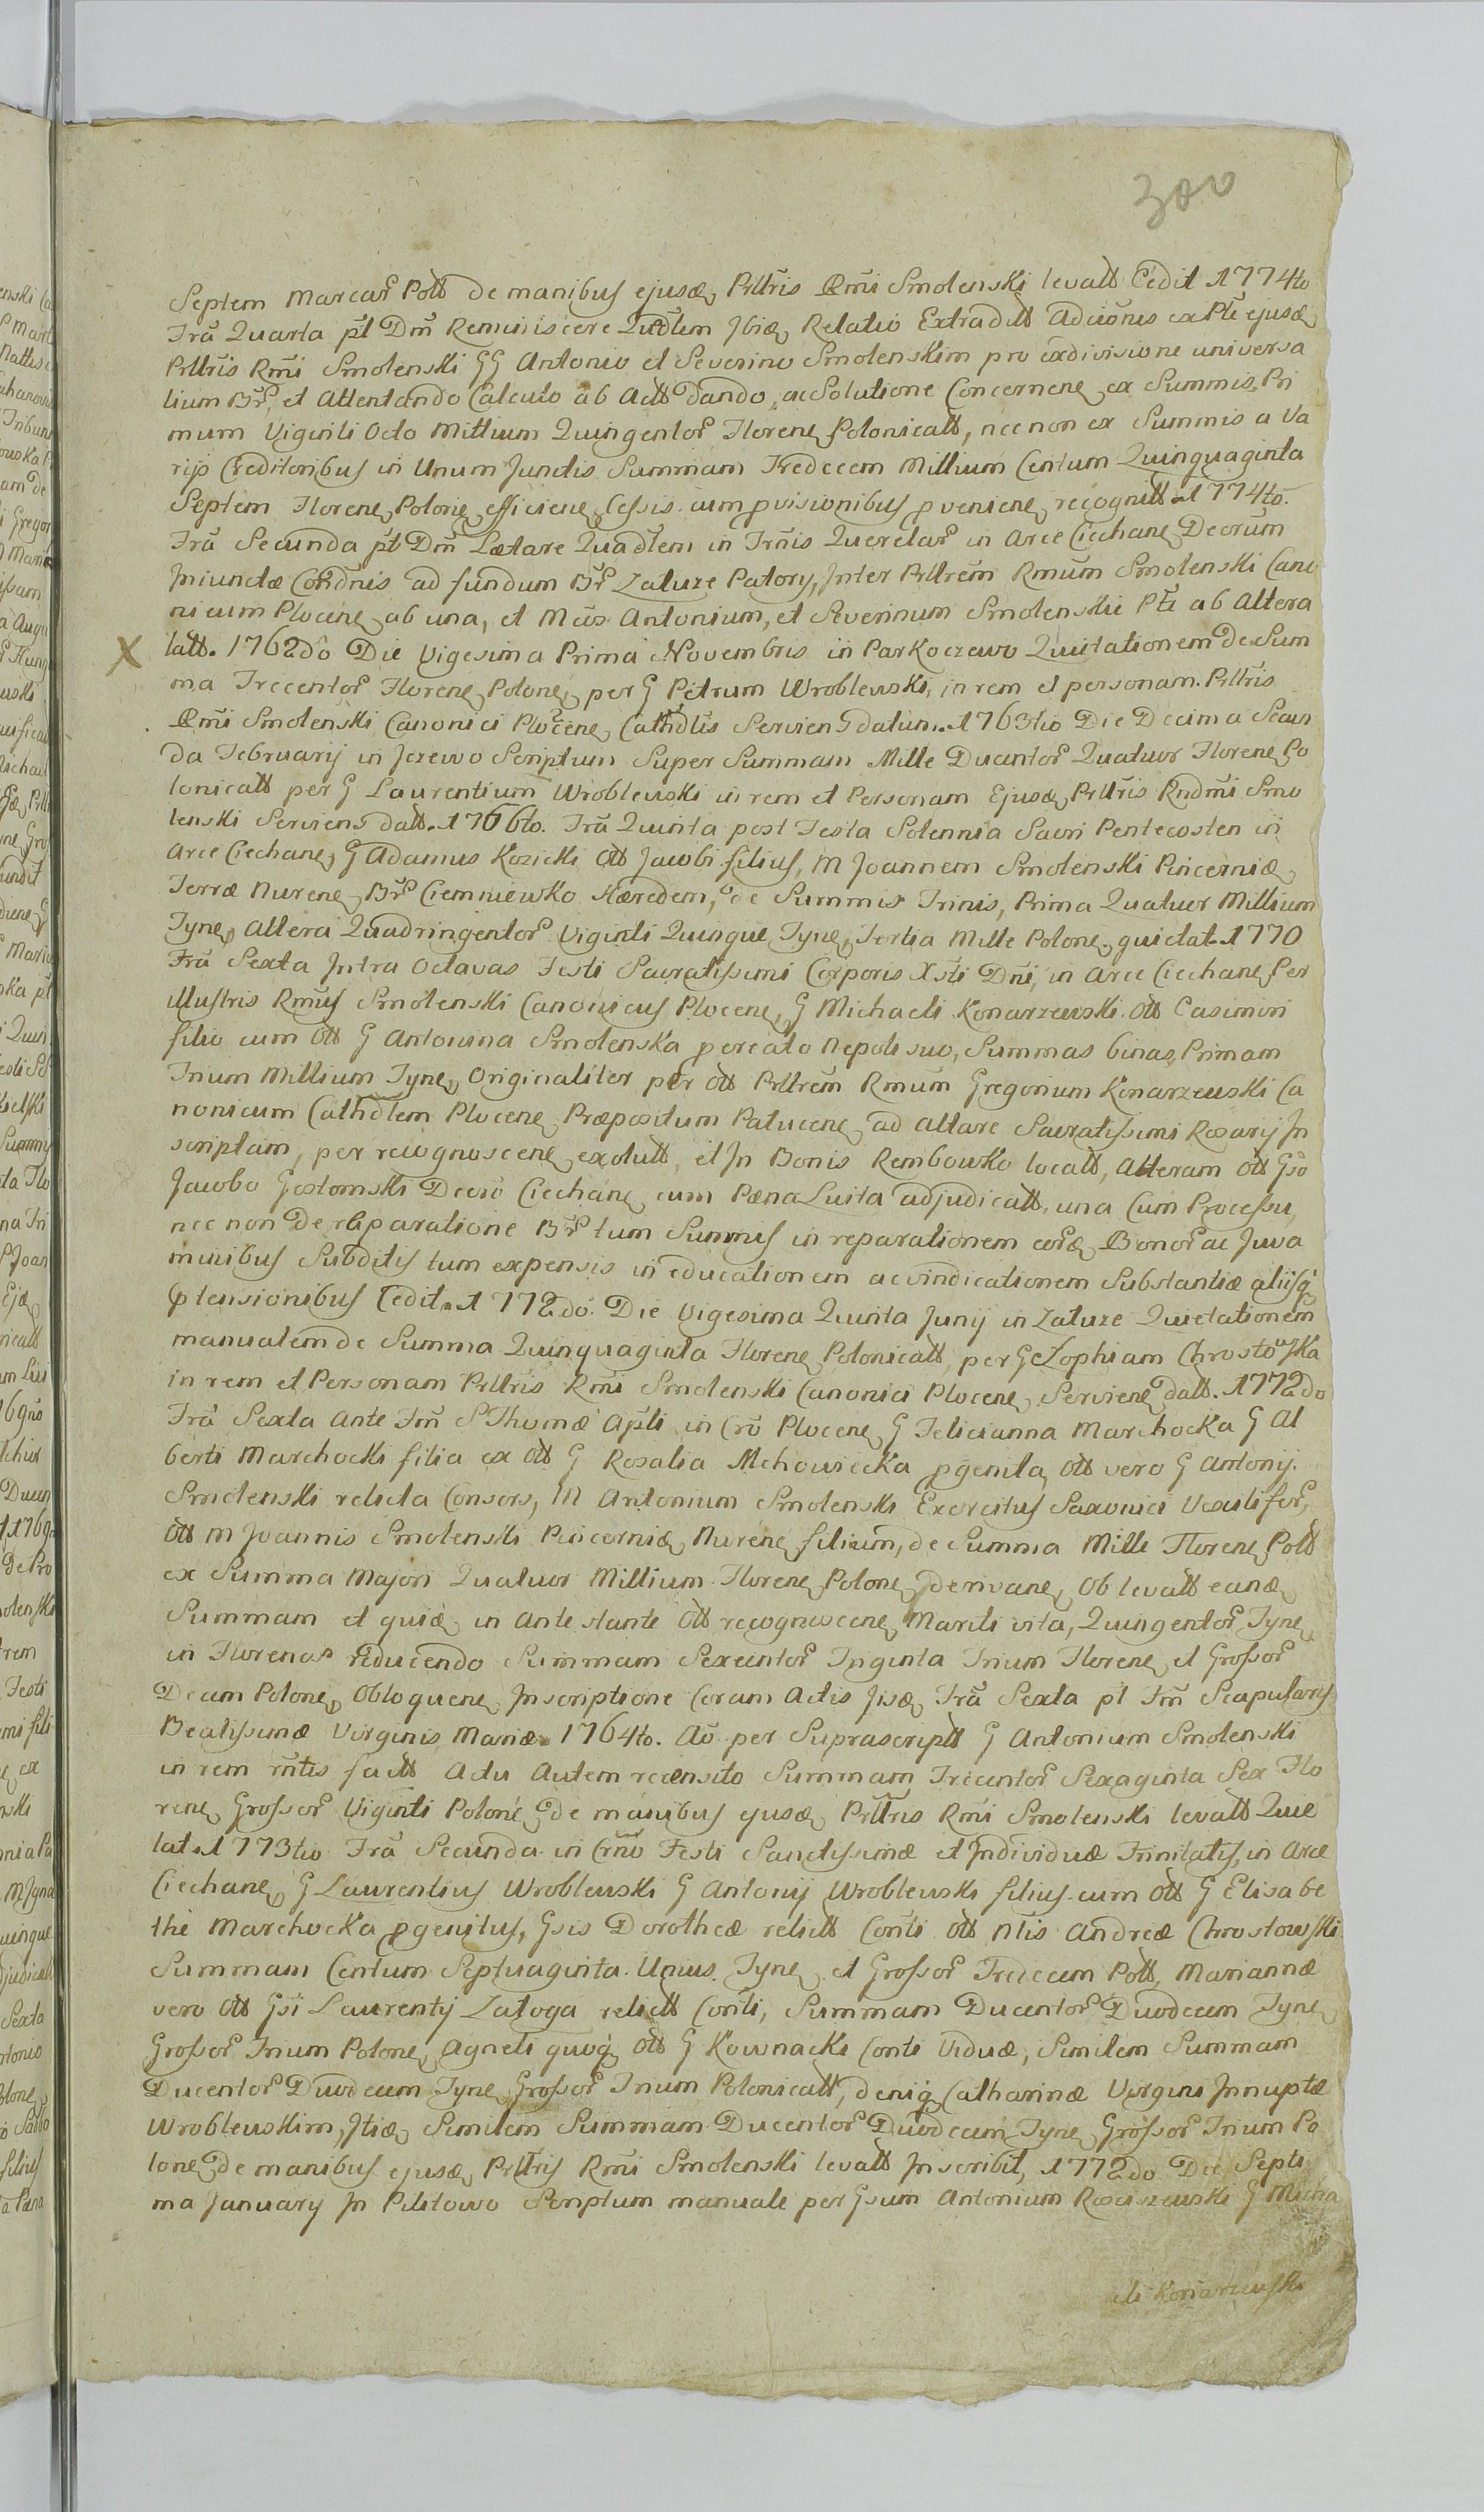 300
Septem Marcar Poll de manibus ejusd Prllris Rmi Smolenski levatt Cedit 1774to
Fra Quarta pt Dm Reminiscere Relatio Extradtt ex Pte ejusd
Prllris Rmi Smolenski GG Antonio et Severino Smolenskim pro exdivisione universa
lium Br, et Attentando Calculo ab Actt dando, ac Solutione Concernene ex Summis, Pri
mum Viginti Octo Millium Quingentor Florene Polonicatt, nec non ex Summis a Va
rijs Creditoribus in Unum Junctis Summam Tredecem Millium Centum Quinquaginta
Septem Florene Polone efficiene Cessis cum pvisionibus pveniene recognitt 1774to.
Fra Secunda pt Dm Lætare Quadlem in Trnis Querelar in Arce Ciechane Decorum
Iniunctæ Condnis ad fundum Br Zaluze Patory, Inter Prllrem Rmum Smolenski Cano
nicum Plocene ab una, et M cos Antonium, et Severinum Smolenskie Pte ab altera
latt. 1762do Die Vigesima Prima Novembris in Parkoczewo Quitationem de Sum
ma Trecentor Florene Polone, per G Petrum Wroblewski, in rem et personam Prllris
Rmi Smolenski Canonici Plocene Cathdlis Serviens datum. 1763tio Die Decima Secun
da Februarij in Jerewo Scriptum Super Summam Mille Ducentor Quatuor Florene Po
lonicatt per G Laurentium Wroblewski in rem et Personam Ejusd Prllris Rndmi Smo
lenski Serviens datt. 1766to. Fra Quinta post Festa Solennia Sacri Pentecosten in
Arce Ciechane, G Adamus Kozicki Ott Jacobi filius, M Joannem Smolenski Pincerniæ
Terræ Nurene, Br Ciemniewko Hæredem, de Summis Trinis, Prima Quatuor Millium
Tyne, altera Quadringentor Viginti Quinque Tyne, Tertia Mille Polone, quietat. 1770
Fra Sexta Intra Octavas Festi Sacratissimi Corporis Xsti Dni, in Arce Ciechane Per
illustris Rmus Smolenski Canonicus Plocene, G Michaeli Konarzewski Ott Casimiri
filio cum Ott G Antonina Smolenska pcreato Nepoti suo, Summas binas, Primam
Trium Millium Tyne, Originaliter per Ott Prllrem Rmum Gregorium Konarzewski Ca
nonicum Cathdlem Plocene Præpositum Patucene ad altare Sacratissimi Rosarij In
scriptam, per recognoscene exolutt, et In Bonis Rembowko locatt, Alteram Ott Gso
Jacobo Gostomski Decro Ciechane cum Pæna Luita adjudicatt, una Cum Processu,
nec non de reparatione Br tum Summis in reparationem eord Bonor ac Juva
minibus Subditis tum expensis in educationem ac vindicationem Substantiæ aliisq
ptensionibus Cedit. 1772do. Die Vigesima Quinta Junij in Zaluze Quietationem
manualem de Summa Quinquaginta Florene Polonicatt, per G Zophiam Chrostowska
in rem et Personam Prllris Rmi Smolenski Canonici Plocene Serviene datt. 1772do
Fra Sexta Ante Fm S Thomæ Apli in Cro Plocene G Felicianna Marchocka G Al
berti Marchocki filia ex Ott G Rosalia Mchowiecka pgenita, Ott vero G Antonij
Smolenski relicta Consors, M Antonium Smolenski Exercitus Saxonici Vexillifer,
Ott M Joannis Smolenski Pincerniæ Nurene filium, de Summa Mille Florene Poll
ex Summa Majori Quatuor Millium Florene Polone derivane, Ob levatt eand
Summam et quid in antestante Ott recognoscene Mariti vita, Quingentor Tyne
in Florenos reducendo Summam Sexcentor Triginta Trium Florene et Grossor
Decem Polone, Obloquene Inscriptione Coram Actis Jisd Fra Sexta pt Fm Scapularis
Beatissimæ Virginis Mariæ 1764to. Ao per Suprascriptt G Antonium Smolenski
in rem rntis factt Actu Autem recensito Summam Trecentor Sexaginta Sex Flo
rene Grossor Viginti Polone de manibus ejusd Prllris Rmi Smolenski levatt Quie
tat. 1773tio Fra Secunda in Crno Festi Sanctissimæ et Individuæ Trinitatis, in Arce
Ciechane, G Laurentius Wroblewski G Antonij Wroblewski filius cum Ott G Elisabe
the Marchocka pgenitus, Gsis Dorotheæ relictt Conti Ott Ntis Andreæ Chrostowski
Summam Centum Septuaginta Unius Tyne et Grossor Tredecem Poll, Mariannæ
vero Ott Gsi Laurentij Zaloga relictt Conti, Summam Ducentor Duodecem Tyne
Grossor Trium Polone, Agneti quoq Ott G Kownacki Conti Viduæ, Similem Summam
Ducentor Duodecem Tyne Grossor Trium Polonicatt, deniq Catharinæ Virgini Innuptæ
Wroblewskim, Itid Similem Summam Ducentor Duodecem Tyne Grossor Trium Po
lone de manibus ejusd Prllris Rmi Smolenski levatt Inscribit, 1772do Die Septi
ma January In Pilitowo Scriptum manuale per Gsum Antonium Rosciszewski G Micha
eli Konarzewski